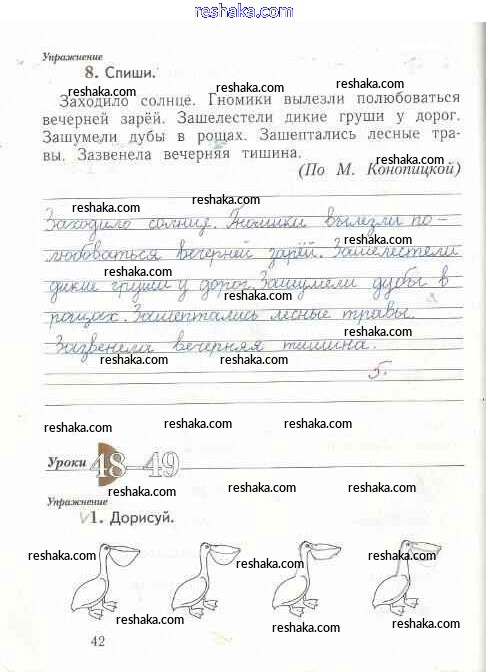 reshaka.com
Упражнение
8. Спиши.
reshaka.com reshaka.com
Заходило солнце. Гномики вылезли полюбоваться
вечерней зарёй. Зашелестели дикие груши у дорог.
Зашумели дубы в рощах. Зашептались лесные тра-
вы. Зазвенела вечерняя тишина.
(По М. Конопицкой)
reshaka.com reshaka.com
reshaka.com reshaka.com reshaka.com
Заходило солнце. Гномики вылезли по-
любоваться вечерней зарёй. Зашелестели
reshaka.com reshaka.com
дикие груши у дорог. Зашумели дубы в
reshaka.com reshaka.com reshaka.com
рощах. Зашептались лесные травы.
reshaka.com reshaka.com
Зазвенела вечерняя тишина.
5.
reshaka.com reshaka.com
reshaka.com reshaka.com reshaka.com
Уроки 48–49
reshaka.com reshaka.com
reshaka.com reshaka.com
Упражнение
1. Дорисуй.
reshaka.com reshaka.com
reshaka.com reshaka.com reshaka.com
reshaka.com reshaka.com
42
reshaka.com